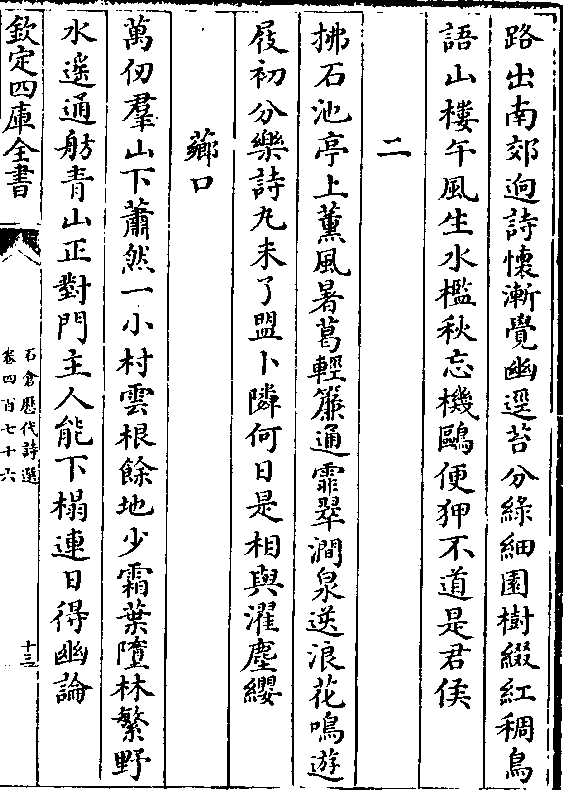 路出南郊迥詩懷漸覺幽逕苔分綠細園樹綴紅稠鳥
語山樓午風生水檻秋忘機鷗便狎不道是君侯
二
拂石池亭上薰風暑葛輕簾通霏翠澗泉送浪花鳴遊
屐初分樂詩丸未了盟卜隣何日是相與濯塵纓
薌口
萬仞羣山下蕭然一小村雲根餘地少霜葉墮林繁野
水遙通舫青山正對門主人能下榻連日得幽論
欽定四庫全書
石倉歷代詩選
卷四百七十六
十三